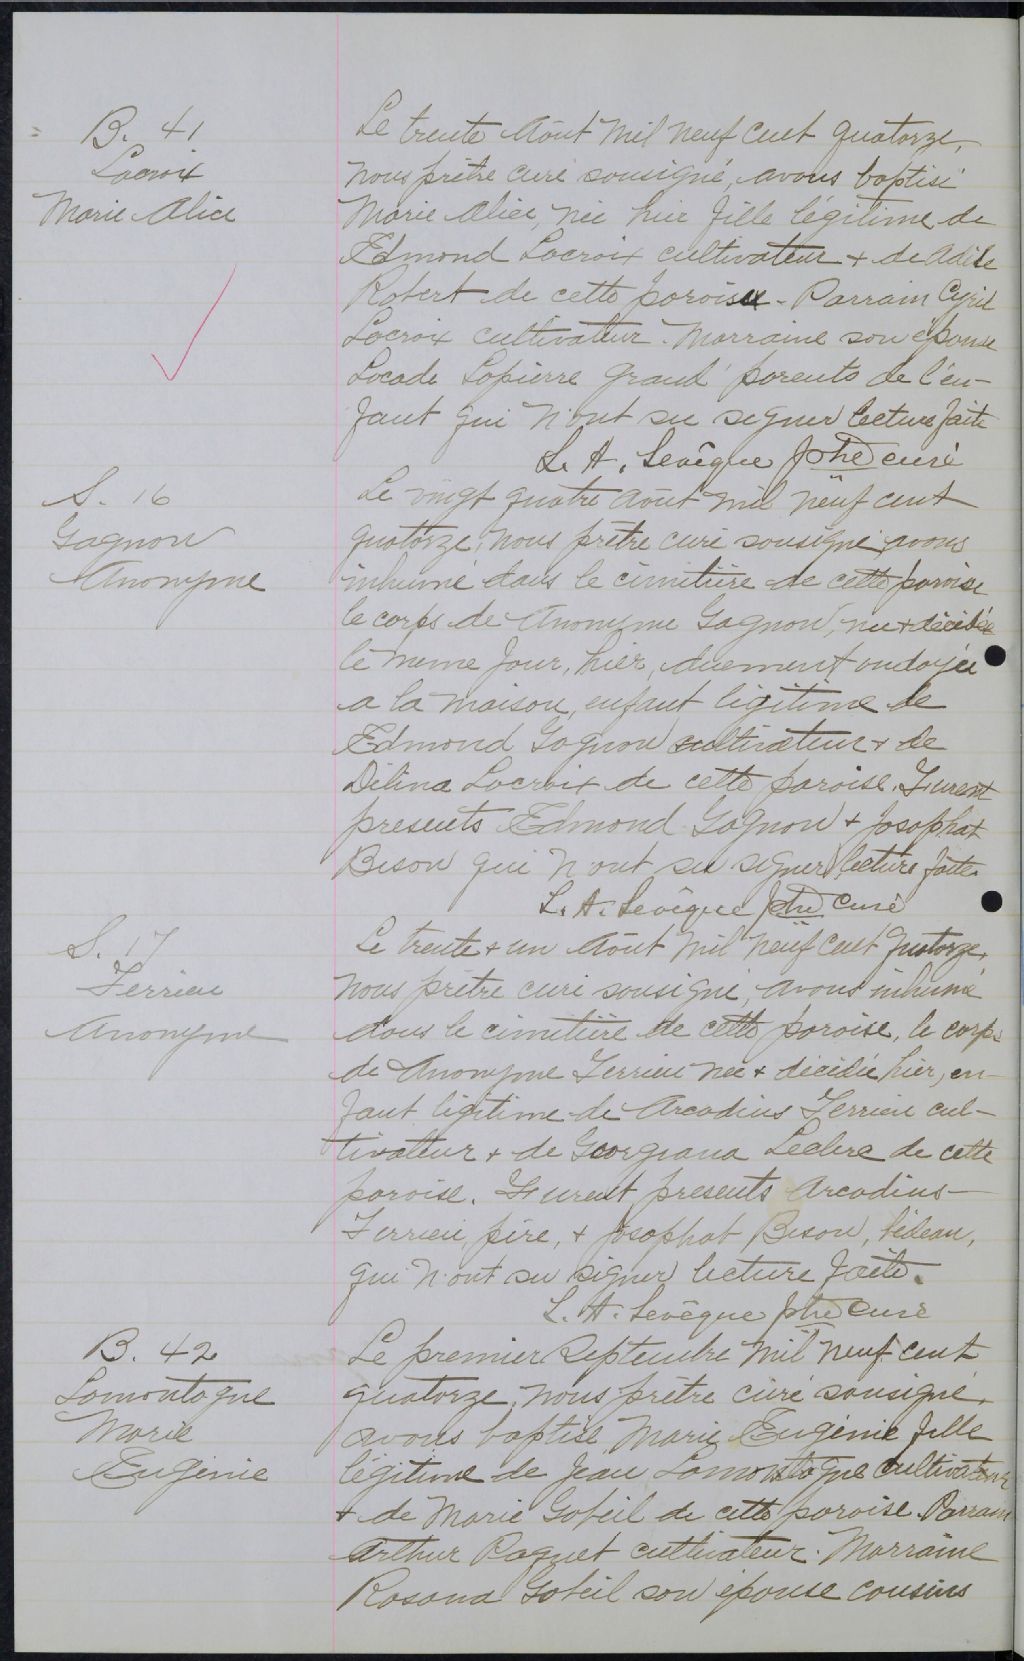 B. 41
Lacroix
Marie Alice
Le trente Août mil neuf cent quatorze,
nous prêtre curé sousigné, avons baptisé
Marie Alice, née hier fille légitime de
Edmond Lacroix cultivateur + de Adèle
Robert de cette paroisse - Parrain Cyril
Lacroix cultivateur. Marraine son épouse
Locade Lapierre grand parents de l'en-
fant qui n'ont su signer lecture faite
L. A. Levêque ptre curé
S. 16
Gagnon
Anonyme
Le vingt quatre août mil neuf cent
quatorze, nous prêtre curé sousigné avons
inhumé dans le cimitière de cette paroise
le corps de Anonyme Gagnon, née + décédée
le meme jour, hier, duement ondoyée
a la maison, enfant légitime de
Edmond Gagnon cultivateur + de
Délina Lacroix de cette paroise. Furent
presents Edmond Gagnon + Josaphat
Bison qui n'ont su signer lecture faite.
L. A. Levêque ptre curé
S. 17
Ferrien
Anonyme
Le trente + un Août mil neuf cent quatorze,
nous prêtre curé sousigné, avons inhumé
dans le cimitière de cette paroise, le corps
de Anonyme Ferrien née + décédée hier, en-
fant légitime de Arcadius Ferrien cul-
tivateur + de Georgiana Leclerc de cette
paroise. Furent presents Arcadius
Ferrien, père, + Josaphat Bison, bédeau,
qui n'ont su signer lecture faite.
L. A. Levêque ptre curé
B. 42
Lamontagne
Marie
Eugénie
Le premier Septembre mil neuf cent
quatorze, nous prêtre curé sousigné,
avons baptisé Marie Eugénie fille
légitime de Jean Lamontagne cultivateur
+ de Marie Gobeil de cette paroise. Parrain
Arthur Paquet cultivateur. Marraine
Rosana Gobeil son épouse cousins